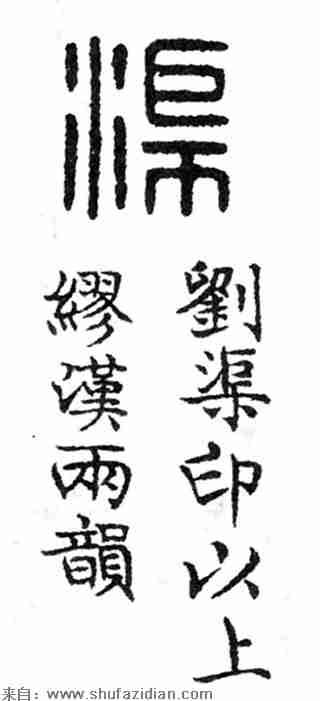 渠
劉渠印以上
繆漢兩韻
来自：www.shufazidian.com